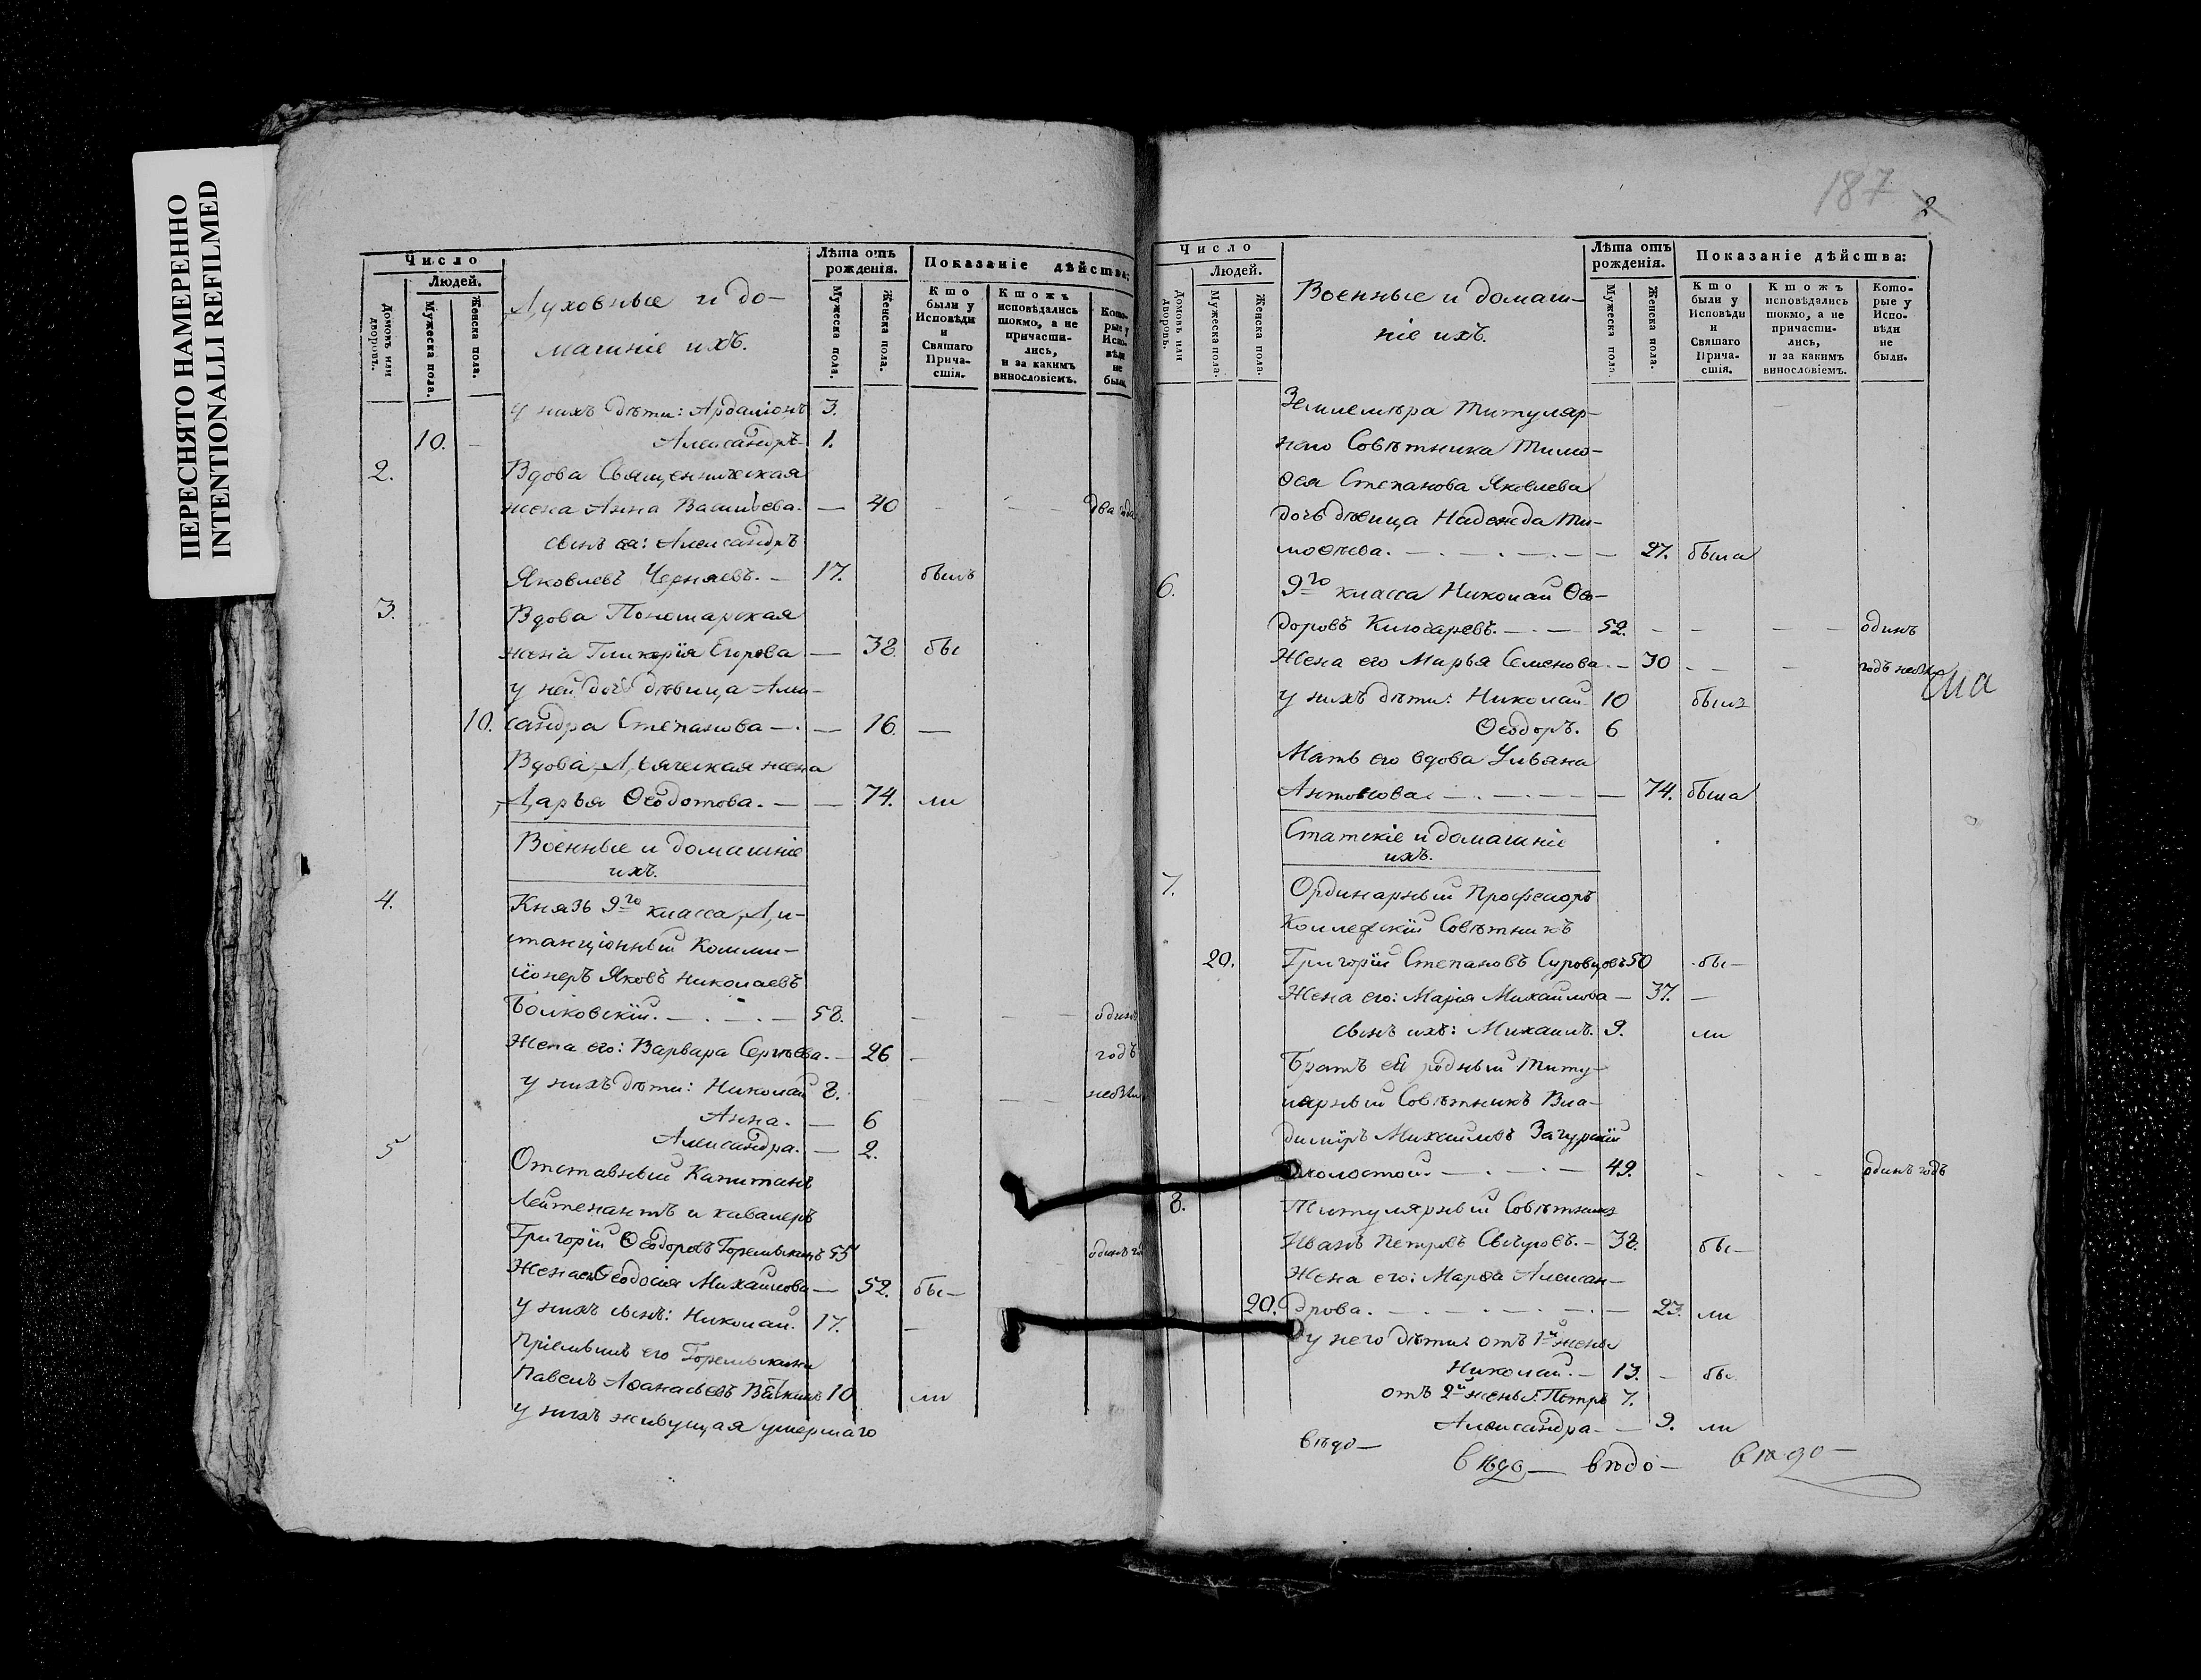 ПЕРЕСНЯТО НАМЕРЕННО
INTENTIONALLI REFILMED
Число
Людей.
Домовъ или дворовъ.
Мужеска пола.
Женска пола.
Духовные и до-
машнiе ихъ.
Лѣта отъ рожденія.
Мужеска пола.
Женска пола.
Показаніе дѣйства:
Кто были у Исповѣди и Святаго Причастія.
Ктожъ исповѣдались токмо, а не причастились, и за какимъ винословіемъ.
Которые у Исповѣди не были.
у нихъ дѣти: Ардаліонъ 3.
10. - Александръ 1.
2. Вдова Священническая
жена Анна Васильева. — 40 два года
сынъ ея: Александръ
Яковлевъ Черняевъ. — 17. былъ
3. Вдова Пономарская
жена Гликерія Егорова — 38. бы
у ней дочь дѣвица Алек-
10. сандра Степанова — 16. —
Вдова Дьяческая жена
Дарья Ѳеодотова. — — 74. ли
Военные и домашніе
ихъ.
4. Князь 9го класса, Ди-
станціонный Комми-
сіонеръ Яковъ Николаевъ
Болховскій. — . — . — 58. одинъ
Жена его: Варвара Сергѣева. — 26 годъ
у нихъ дѣти: Николай 8.
Анна. — 6
Александра. — 2.
5 Отставный Капитанъ
Лейтенантъ и кавалеръ
Григорій Ѳеодоровъ 55
Жена его Ѳеодосія Михайлова — 52. бы—
у нихъ сынъ: Николай. 17.
Пріемышъ его
Павелъ Аѳанасьевъ 10 ли
у нихъ живущая умершаго
187
2
Число
Людей.
Домовъ или дворовъ.
Мужеска пола.
Женска пола.
Военные и домаш-
ніе ихъ.
Лѣта отъ рожденія.
Мужеска пола.
Женска пола.
Показаніе дѣйства:
Кто были у Исповѣди и Святаго Причастія.
Ктожъ исповѣдались токмо, а не причастились, и за какимъ винословіемъ.
Которые у Исповѣди не были.
Землемѣра Титуляр-
наго Совѣтника Тимо-
ѳея Степанова Яковлева
дочь дѣвица Надежда Ти-
моѳеева. — . — . — . — 27. была
6. 9го класса Николай Ѳео-
доровъ Ключаревъ. — . — 52. одинъ
Жена его Марья Семенова. — 30 годъ
у нихъ дѣти: Николай 10 былъ
Ѳеодоръ. 6
Мать его вдова Ульяна
Антонова. — . — . — — 74. была
Статскіе и домашніе
ихъ.
7. Ординарный Професоръ
Коллежскій Совѣтникъ
20. Григорій Степановъ Суровцовъ 50 бы—
Жена его: Марія Михайлова — 37. —
сынъ ихъ: Михаилъ. 9. ли
Братъ ей родный Титу-
лярный Совѣтникъ Вла-
диміръ Михайловъ Загурскій
холостой. — . — . — 49. одинъ годъ
8. Титулярный Совѣтникъ
Иванъ Петровъ — 38. бы—
Жена его: Марѳа Алексан-
20. дрова. — . — . — . — 23. ли
у него дѣти отъ 1й жены
Николай. — 13. — бы
отъ 2й жены: Петръ 7.
Александра. — 9. ли
вѣдо—
вѣдо— вѣдо— вѣдо—